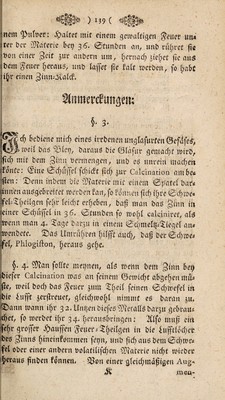 ) 139 (
nem Pulver: Haltet mit einem gewaltigen Feuer un-
ter der Materie bey 36. Stunden an, und rühret sie
von einer Zeit zur andern um, hernach ziehet sie aus
dem Feuer heraus, und lasset sie kalt werden, so habt
ihr einen Zinn-Kalck.
Anmerckungen:
§. 3.
Ich bediene mich eines irrdenen unglasurten Gefäses,
weil das Bley, daraus die Glasur gemacht wird,
sich mit dem Zinn vermengen, und es unrein machen
könte: Eine Schüssel schickt sich zur Calcination am be-
sten: Denn indem die Materie mit einem Spatel dar-
innen ausgebreitet werden kan, so können sich ihre Schwe-
fel-Theilgen sehr leicht erheben, daß man das Zinn in
einer Schüssel in 36. Stunden so wohl calciniret, als
wenn man 4. Tage darzu in einem Schmeltz-Tiegel an-
wendete. Das Umrühren hilfft auch, daß der Schwe-
fel, Phlogiston, heraus gehe.
§. 4. Man sollte meynen, als wenn dem Zinn bey
dieser Calcination was an seinem Gewicht abgehen müs-
ste, weil doch das Feuer zum Theil seinen Schwefel in
die Lufft zerstreuet, gleichwohl nimmt es daran zu.
Dann wann ihr 32. Untzen dieses Metalls darzu gebrau-
chet, so werdet ihr 34. herausbringen: Also muß ein
sehr grosser Hauffen Feuer-Theilgen in die Lufftlöcher
des Zinns hineinkommen seyn, und sich aus dem Schwe-
fel oder einer andern volatilischen Materie nicht wieder
heraus finden können. Von einer gleichmäßigen Aug-
K men-